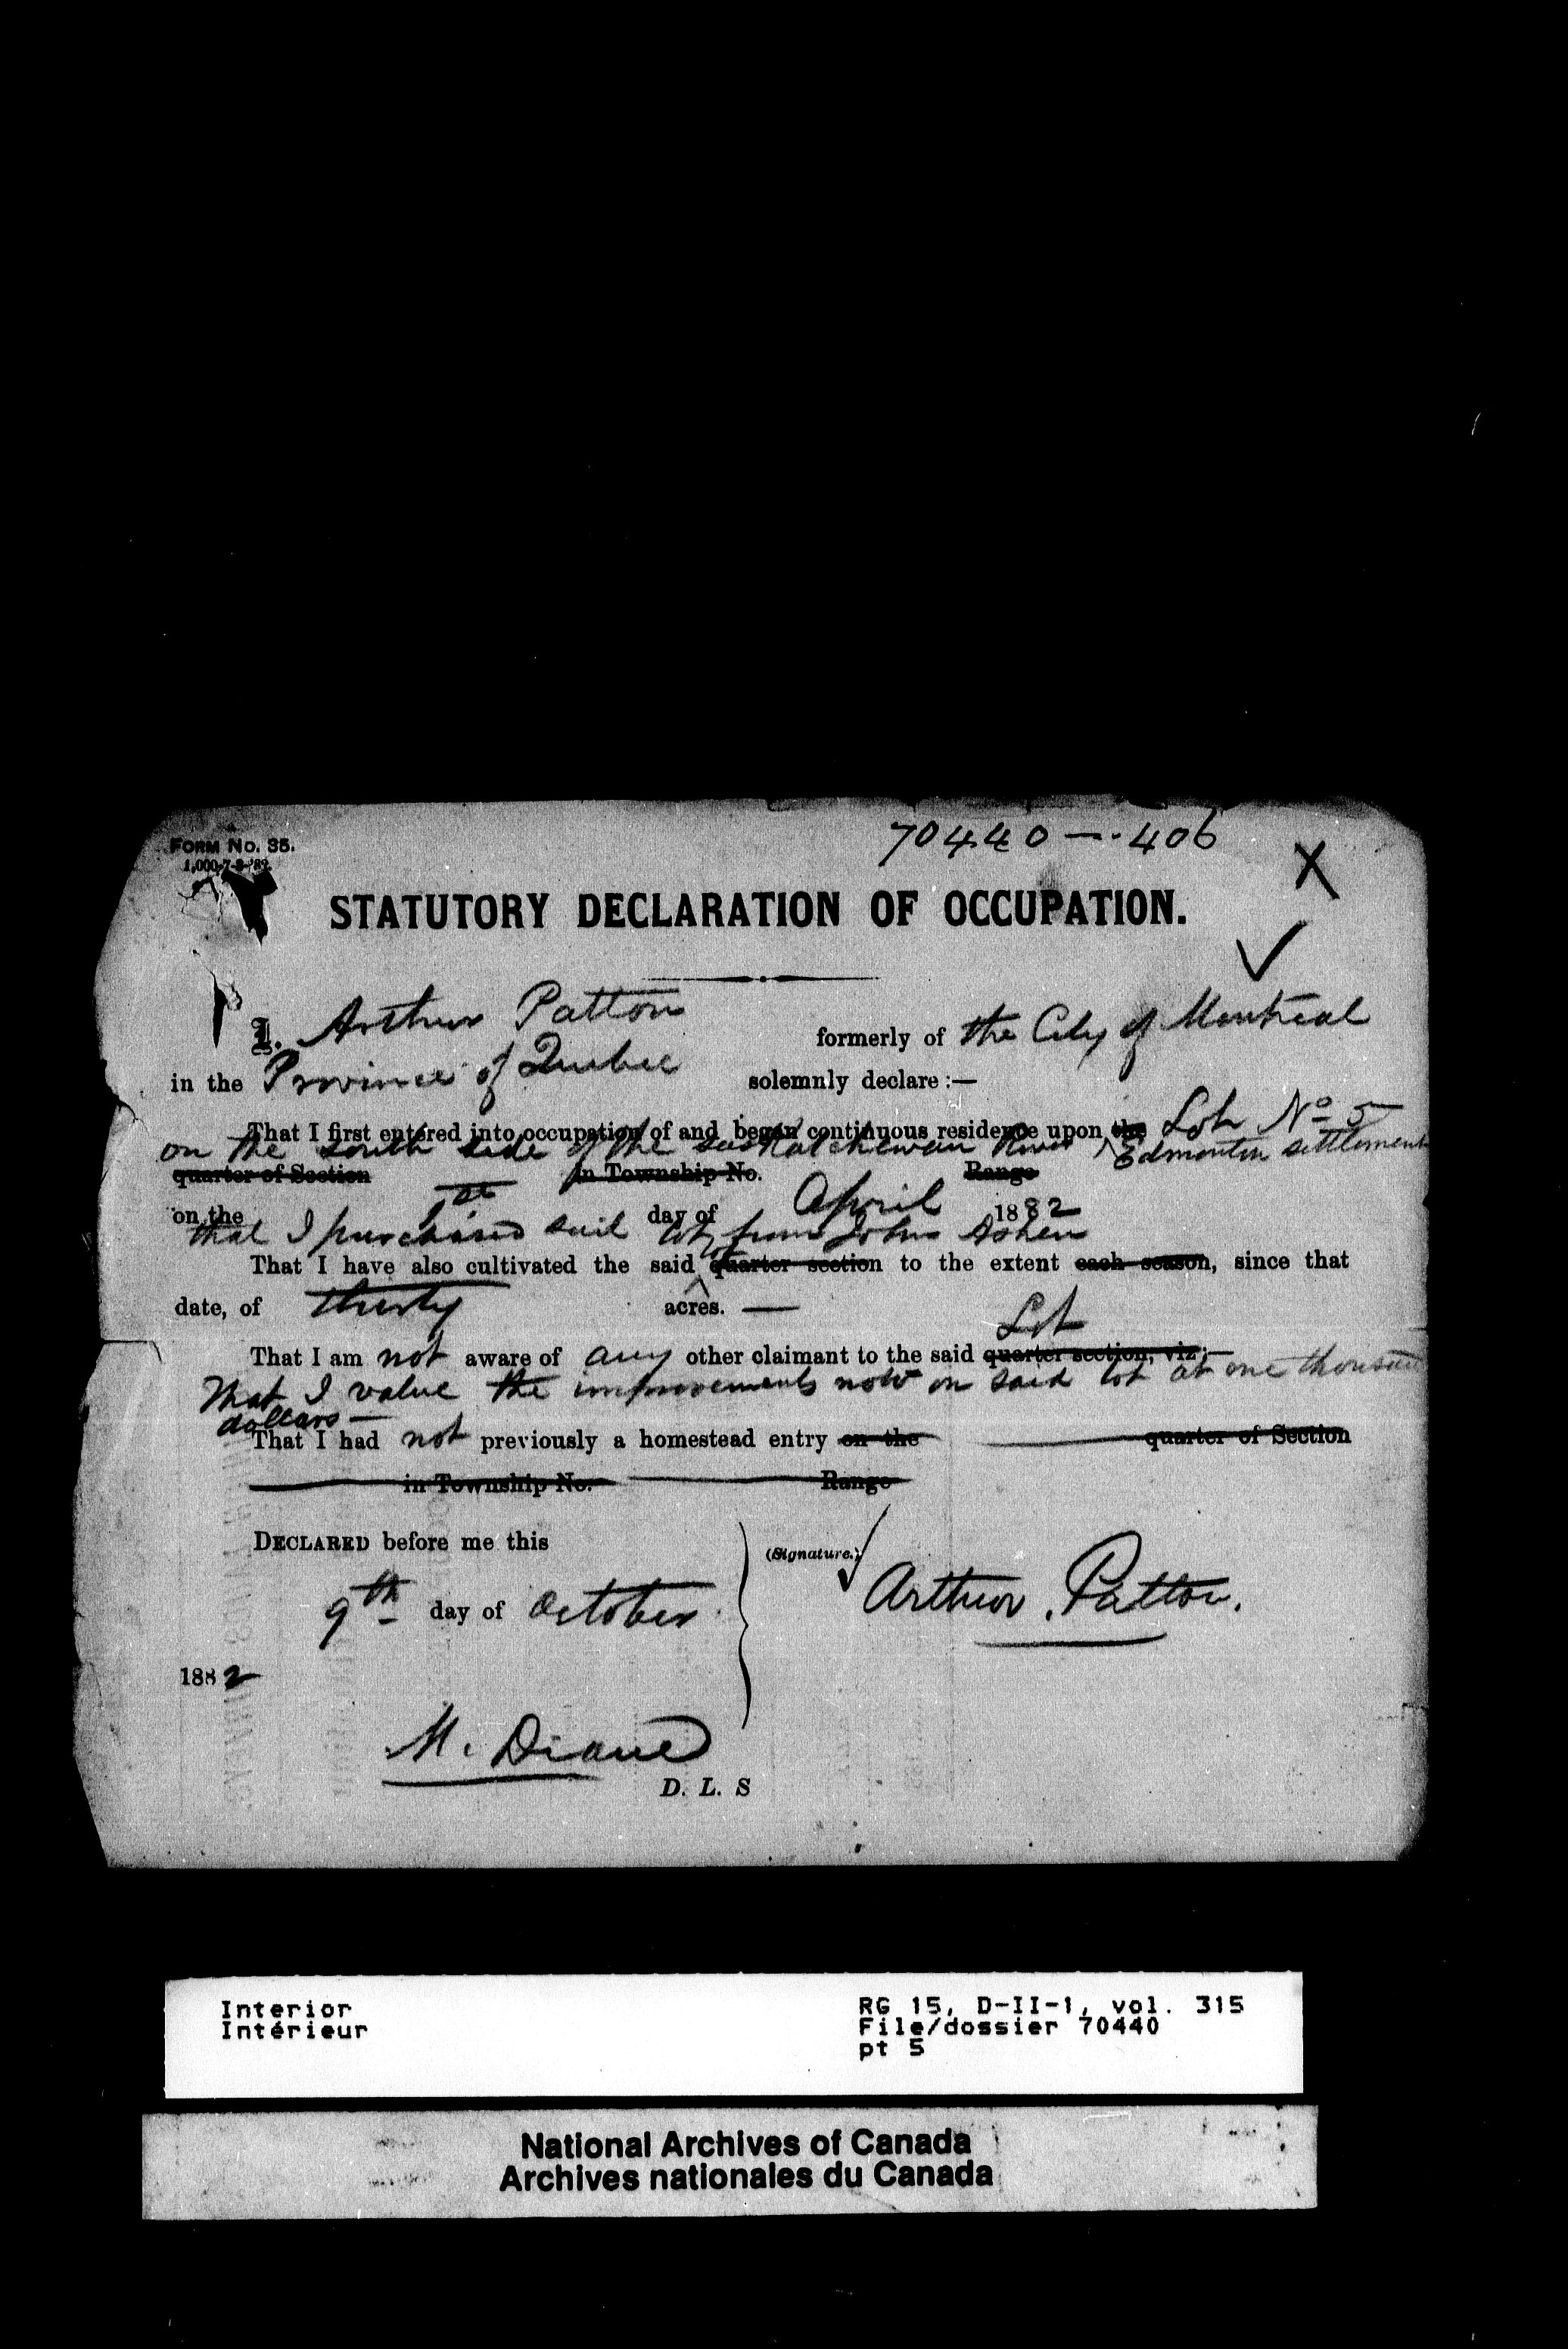 70440 — 406
FORM No. 35.
1,000-7-3-'82.
X
STATUTORY DECLARATION OF OCCUPATION.
I, Arthur Patton formerly of the City of Montreal
in the Province of Quebec solemnly declare :—
That I first entered into occupation of and began continuous residence upon the Lot No 5
on the south side of the Saskatchewan River Edmonton settlement
quarter of Section in Township No. Range
on the 1st day of April 1882
that I purchased said lot from John
That I have also cultivated the said quarter section lot to the extent each season, since that
date, of thirty acres. —
Lot
That I am not aware of any other claimant to the said quarter section, viz :—
That I value the improvements now on said lot at one thousand
dollars —
That I had not previously a homestead entry on the quarter of Section
in Township No. Range
DECLARED before me this
(Signature.)
9th day of October
Arthur Patton.
1882
M. Deane
D. L. S
Interior RG 15, D-II-1, vol. 315
Intérieur File/dossier 70440
pt 5
National Archives of Canada
Archives nationales du Canada